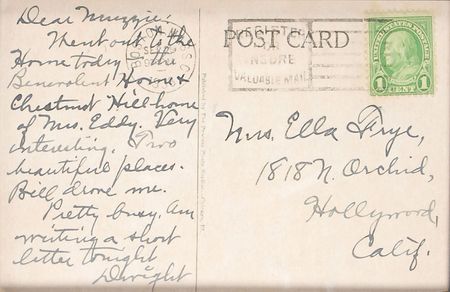 Dear Muzzie:
Went out to the
Home today – the
Benevolent Home &
Chestnut Hill home
of Mrs. Eddy. Very
interesting. Two
beautiful places.
Bill drove me.
Pretty busy. Am
writing a short
letter tonight
Dwight
POST CARD
INSURE
VALUABLE MAIL
BOSTON
UNITED STATES POSTAGE
1 CENT 1
Mrs. Ella Frye,
1818 N. Orchid,
Hollywood,
Calif.